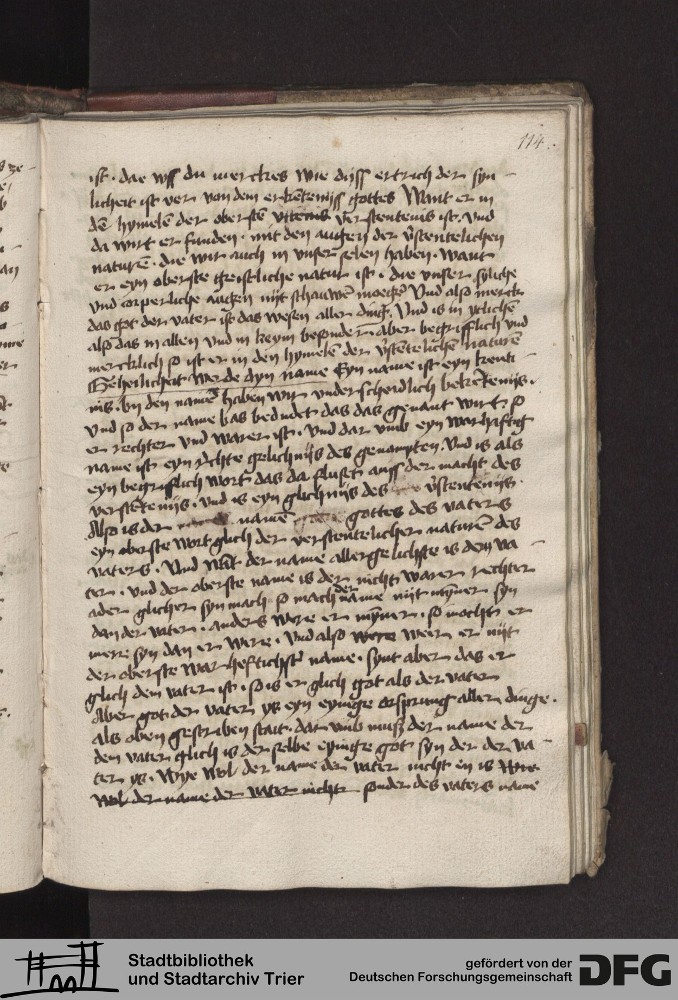 114.
ist. dae wss du merckes wie dyss ertrich der syn
licheit ist ver von dem erkētenyss gottes Want er in
dē hymelen der oberstē verstentenis ist. Und
da wirt er funden. mit den augen der v̄stentelichen
naturē. die wir auch in unser selen haben. Want
er eyn oberste geistliche natur ist. die unser syliche
und corperliche augen nyt schauwē moegē Und also merck
das got der vater ist das wesen aller dinge. Und is in ytlichē
also das in allen und in keym besonder. aber begrifflich und
mercklich so ist er in den hymelē der v̄stētelichē naturē
Geheilicheit werde dyn name Eyn name ist eyn kenti
nis. In den namē haben wir underscheidlich bekētenys.
Und so der name bas bedudet das das genant wirt so
er rechter und warer ist. Und dar umb eyn warhafftig
name ist eyn rechte gelichnys des genanten. Und is als
eyn begrifflich wort das da fluset auss der macht des
verstētenys. und is eyn glichnys des v̄stentenys.
Also is der namē gottes des vaters
eyn oberste wort glich der verstentelicher naturē des
vaters. Und wāt der name aller gelichste is dem va
ter. und der oberste name is der nicht warer rechter
ader glicher syn mach so mach der name nyt myner syn
dan der vater. anders were er myner. so mocht er
merre syn dan er were. Und also were weer er nyt
der oberste warhefftichste name. Synt aber das er
glich dem vater ist. so is er glich got als der vater
Aber got der vater ys eyn eynige orsprung aller dinge.
als oben gescriben stait. dar umb muss der name der
dem vater glich is der selbe eynige got syn der der va
ter ys. Wye wol der name der vater nicht en is Wie
wol der name der vater nicht sonder des vaters name
Stadtbibliothek
und Stadtarchiv Trier
gefördert von der
Deutschen Forschungsgemeinschaft
DFG